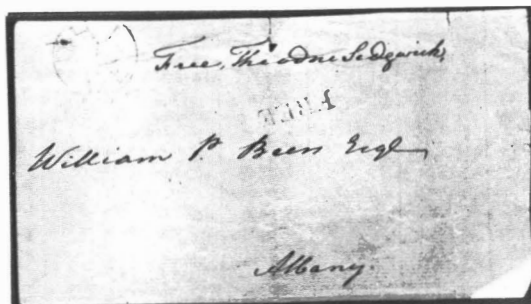 Free, Theodore Sedgwick,
FREE
William P. Beers Esqr
Albany.